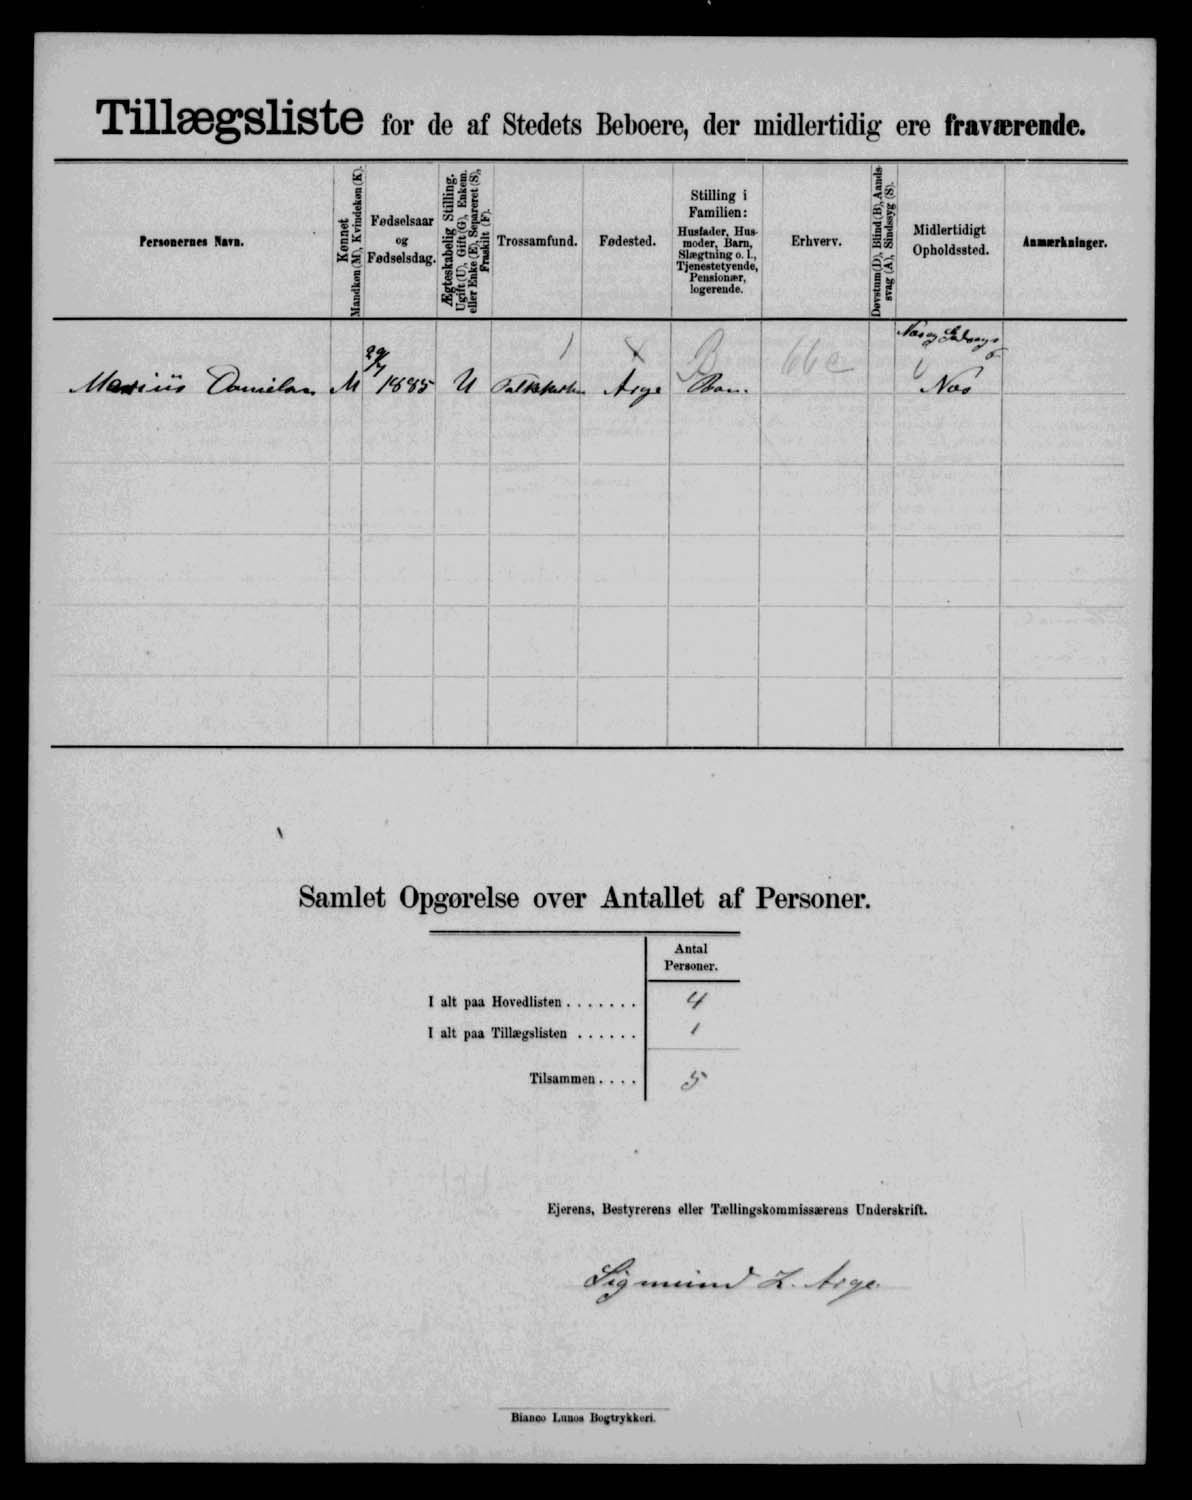 Tillægsliste for de af Stedets Beboere, der midlertidig ere fraværende.
Personernes Navn.
Kønnet
Mandkøn (M), Kvindekøn (K).
Fødselsaar
og
Fødselsdag.
Ægteskabelig Stilling.
Ugift (U), Gift (G), Enkem.
eller Enke (E), Separeret (S),
Fraskilt (F).
Trossamfund.
Fødested.
Stilling i
Familien:
Husfader, Hus-
moder, Barn,
Slægtning o. l.,
Tjenestetyende,
Pensionær,
logerende.
Erhverv.
Døvstum (D), Blind (B), Aands-
svag (A), Sindssyg (S).
Midlertidigt
Opholdssted.
Anmærkninger.
Marius Danielsen M 29/7 1885 U Folkekirken Arge Barn. Næs
1 x B 66 c
Samlet Opgørelse over Antallet af Personer.
Antal
Personer.
I alt paa Hovedlisten . . . . . . . 4
I alt paa Tillægslisten . . . . . . 1
Tilsammen . . . . 5
Ejerens, Bestyrerens eller Tællingskommissærens Underskrift.
Sigmund Z. Arge
Bianco Lunos Bogtrykkeri.